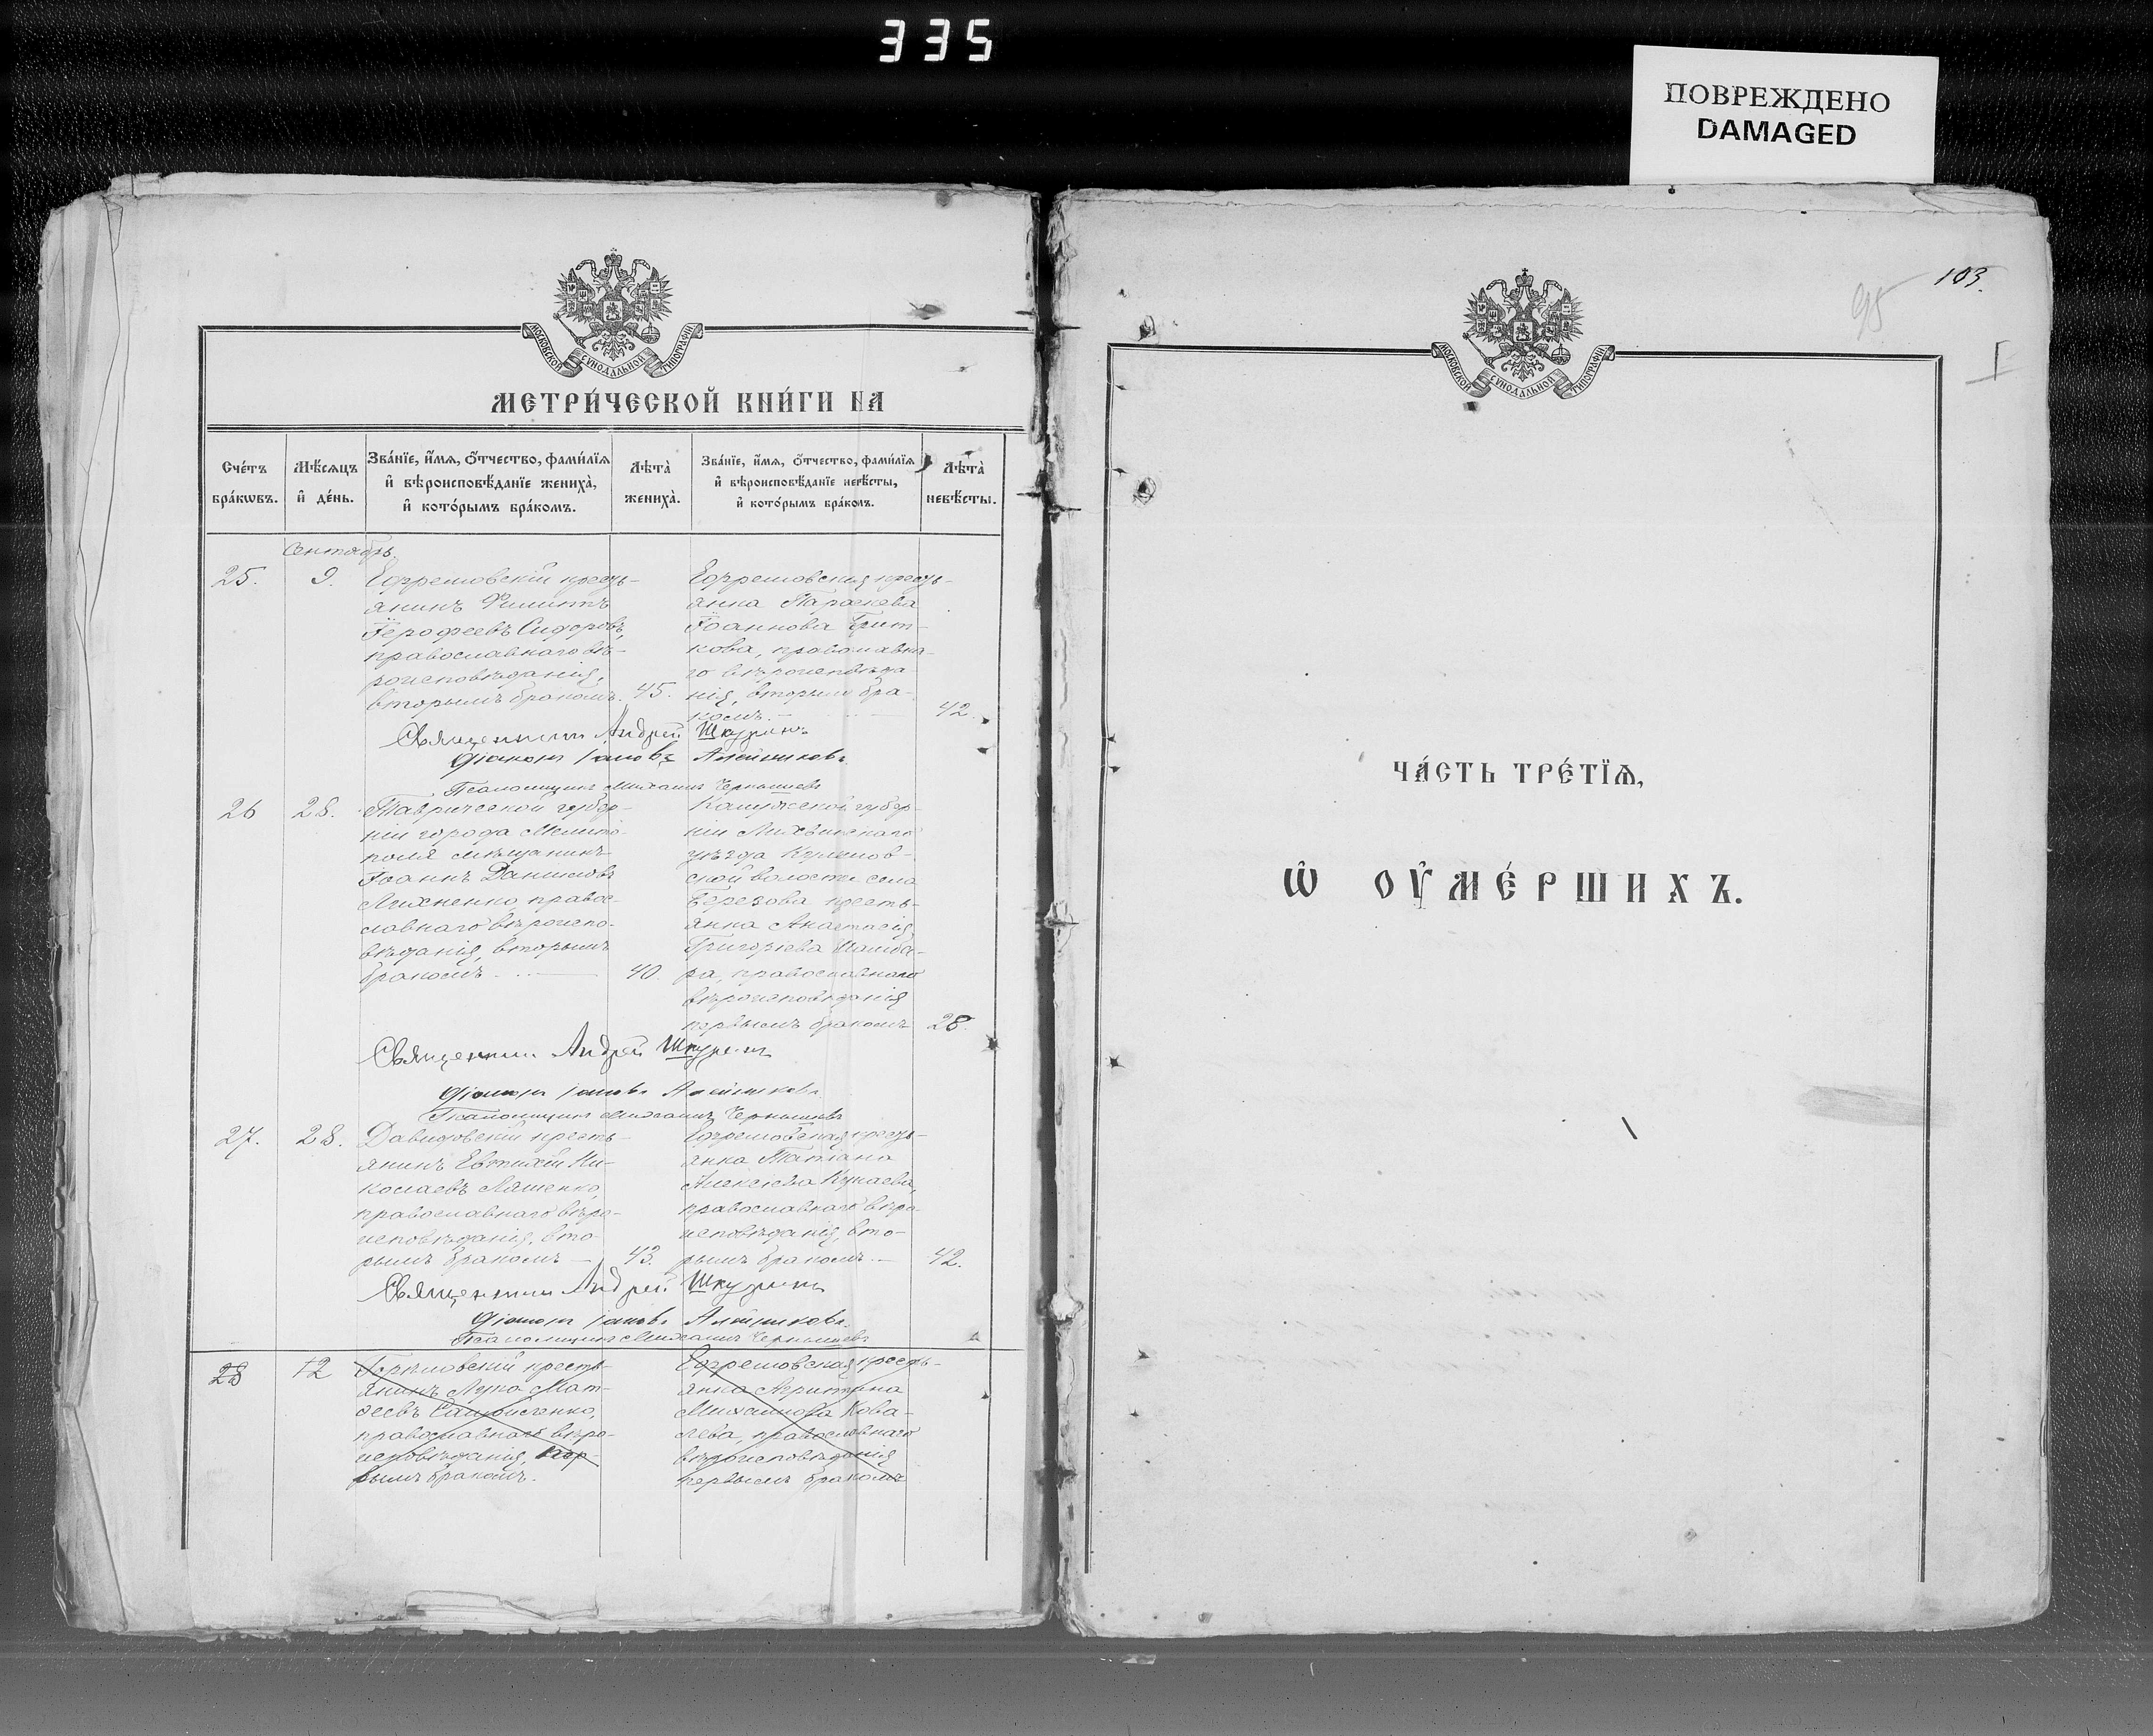 335
ПОВРЕЖДЕНО
DAMAGED
МОСКОВСКОЙ СѴНОДАЛЬНОЙ ТИПОГРАФІИ
МЕТРИ́ЧЕСКОЙ КНИ́ГИ НА
Сче́тъ бра́кѡвъ.
Мѣ́сяцъ и҆ де́нь.
Зва́нїе, и҆́мѧ, ѻ҆́тчество, фами́лїѧ
и҆ вѣроисповѣ́данїе жениха̀,
и҆ кото́рымъ бра́комъ.
Лѣта̀ жениха̀.
Зва́нїе, и҆́мѧ, ѻ҆́тчество, фами́лїѧ
и҆ вѣроисповѣ́данїе невѣ́сты,
и҆ кото́рымъ бра́комъ.
Лѣта̀ невѣ́сты.
Сентябрь.
25.
9.
Ефремовскій кресть-
янинъ Филиппъ
Іерофеевъ Сидоровъ,
православнаго вѣ-
роисповѣданія,
вторымъ бракомъ.
45.
Ефремовская кресть-
янка Параскева
Іоаннова
кова, православна-
го вѣроисповѣда
нія, вторымъ бра-
комъ.
42.
Священникъ Андрей Шкуринъ
Діаконъ Іаковъ Алейниковъ
Псаломщикъ Михаилъ Чернышевъ
26
28.
Таврической губер-
ніи города Мелито-
поля мѣщанинъ
Іоаннъ Даниловъ
Михненко правос-
лавнаго вѣроиспо-
вѣданія, вторымъ
бракомъ
40.
Калужской губер-
ніи Лихвинскаго
уѣзда
ской волости села
Березова кресть-
янка Анастасія
Григорьева
ра, православнаго
вѣроисповѣданія
первымъ бракомъ
28.
Священникъ Андрей Шкуринъ
Діаконъ Іаковъ Алейниковъ
Псаломщикъ Михаилъ Чернышевъ
27.
28.
Давидовскій кресть-
янинъ Евтихій Ни-
колаевъ Ляшенко,
православнаго вѣро-
исповѣданія, вто-
рымъ бракомъ
43.
Ефремовская кресть-
янка Татіана
Алексѣева Кунаева,
православнаго вѣро-
исповѣданія, вто-
рымъ бракомъ
42.
Священникъ Андрей Шкуринъ
Діаконъ Іаковъ Алейниковъ
Псаломщикъ Михаилъ Чернышевъ
28
12
кресть-
янинъ Лука Мат-
феевъ
православнаго вѣро-
исповѣданія, пер-
вымъ бракомъ.
Ефремовская кресть-
янка
Михаилова Кова-
лева, православнаго
вѣроисповѣданія
первымъ бракомъ
103.
95
I
МОСКОВСКОЙ СѴНОДАЛЬНОЙ ТИПОГРАФІИ
ЧА́СТЬ ТРЕ́ТЇѦ,
Ѡ҆ ОУ҆МЕ́РШИХЪ.